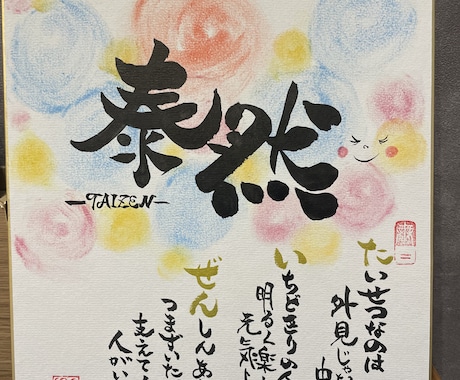 泰然
—TAIZEN—
たいせつなのは
外見じゃ
いちどきりの人
明るく楽
元気
ぜんしんあ
つまずいた
支えて
人がい